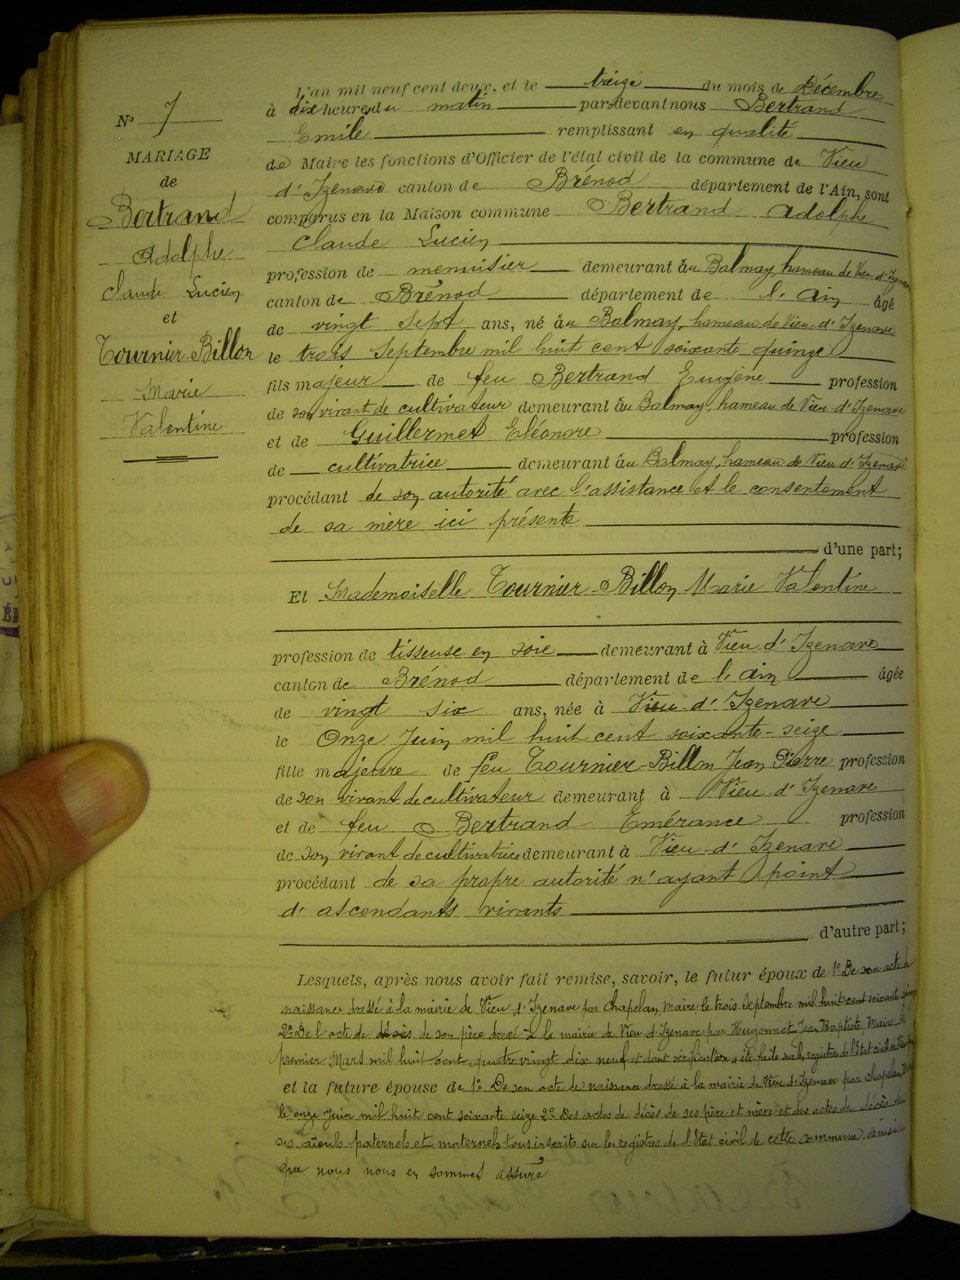 N° 7
MARIAGE
de
Bertrand
Adolphe
Claude Lucien
et
Tournier-Billon
Marie
Valentine
L'an mil neuf cent deux, et le treize du mois de Décembre
à dix heures du matin par devant nous Bertrand
Emile remplissant en qualité
de Maire les fonctions d'Officier de l'état civil de la commune de Vieu
d'Izenave canton de Brénod département de l'Ain, sont
comparus en la Maison commune Bertrand Adolphe
Claude Lucien
profession de menuisier demeurant au Balmay, hameau de Vieu-d'Izenave
canton de Brénod département de l'Ain âgé
de vingt sept ans, né au Balmay, hameau de Vieu-d'Izenave
le trois Septembre mil huit cent soixante quinze
fils majeur de feu Bertrand Eugène profession
de son vivant de cultivateur demeurant au Balmay, hameau de Vieu-d'Izenave
et de Guillermet Eléonore profession
de cultivatrice demeurant au Balmay, hameau de Vieu-d'Izenave
procédant de son autorité avec l'assistance et le consentement
de sa mère ici présente
d'une part;
Et Mademoiselle Tournier-Billon Marie Valentine
profession de tisseuse en soie demeurant à Vieu-d'Izenave
canton de Brénod département de l'Ain âgée
de vingt six ans, née à Vieu-d'Izenave
le Onze Juin mil huit cent soixante-seize
fille majeure de feu Tournier-Billon Jean Pierre profession
de son vivant de cultivateur demeurant à Vieu-d'Izenave
et de feu Bertrand Emérance profession
de son vivant de cultivatrice demeurant à Vieu-d'Izenave
procédant de sa propre autorité n'ayant point
d'ascendants vivants
d'autre part;
Lesquels, après nous avoir fait remise, savoir, le futur époux de 1° De son acte de
naissance dressé à la mairie de Vieu d'Izenave par Chapelan, Maire le trois Septembre mil huit cent soixante quinze
2° De l'acte de décès de son père dressé à la mairie de Vieu d'Izenave par Hugonnet Jean Baptiste, Maire le
premier Mars mil huit cent quatre vingt dix neuf et dont vérification a été faite sur les registres de l'Etat civil
et la future épouse de 1° De son acte de naissance dressé à la mairie de Vieu d'Izenave par Chapelan
le onze Juin mil huit cent soixante seize 2° Des actes de décès de ses père et mère et des actes de décès de
ses aïeuls paternels et maternels tous inscrits sur les registres de l'Etat civil de cette commune ainsi
que nous nous en sommes assuré